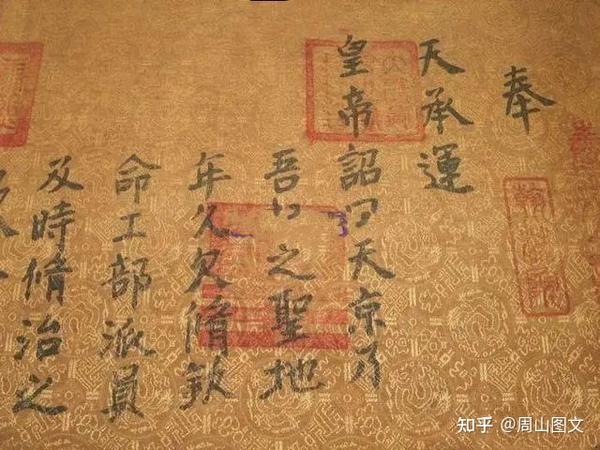 奉
天承運
皇帝詔曰天京乃
吾之聖地
年久欠脩欽
命工部派員
及時脩治之
知乎 @周山图文